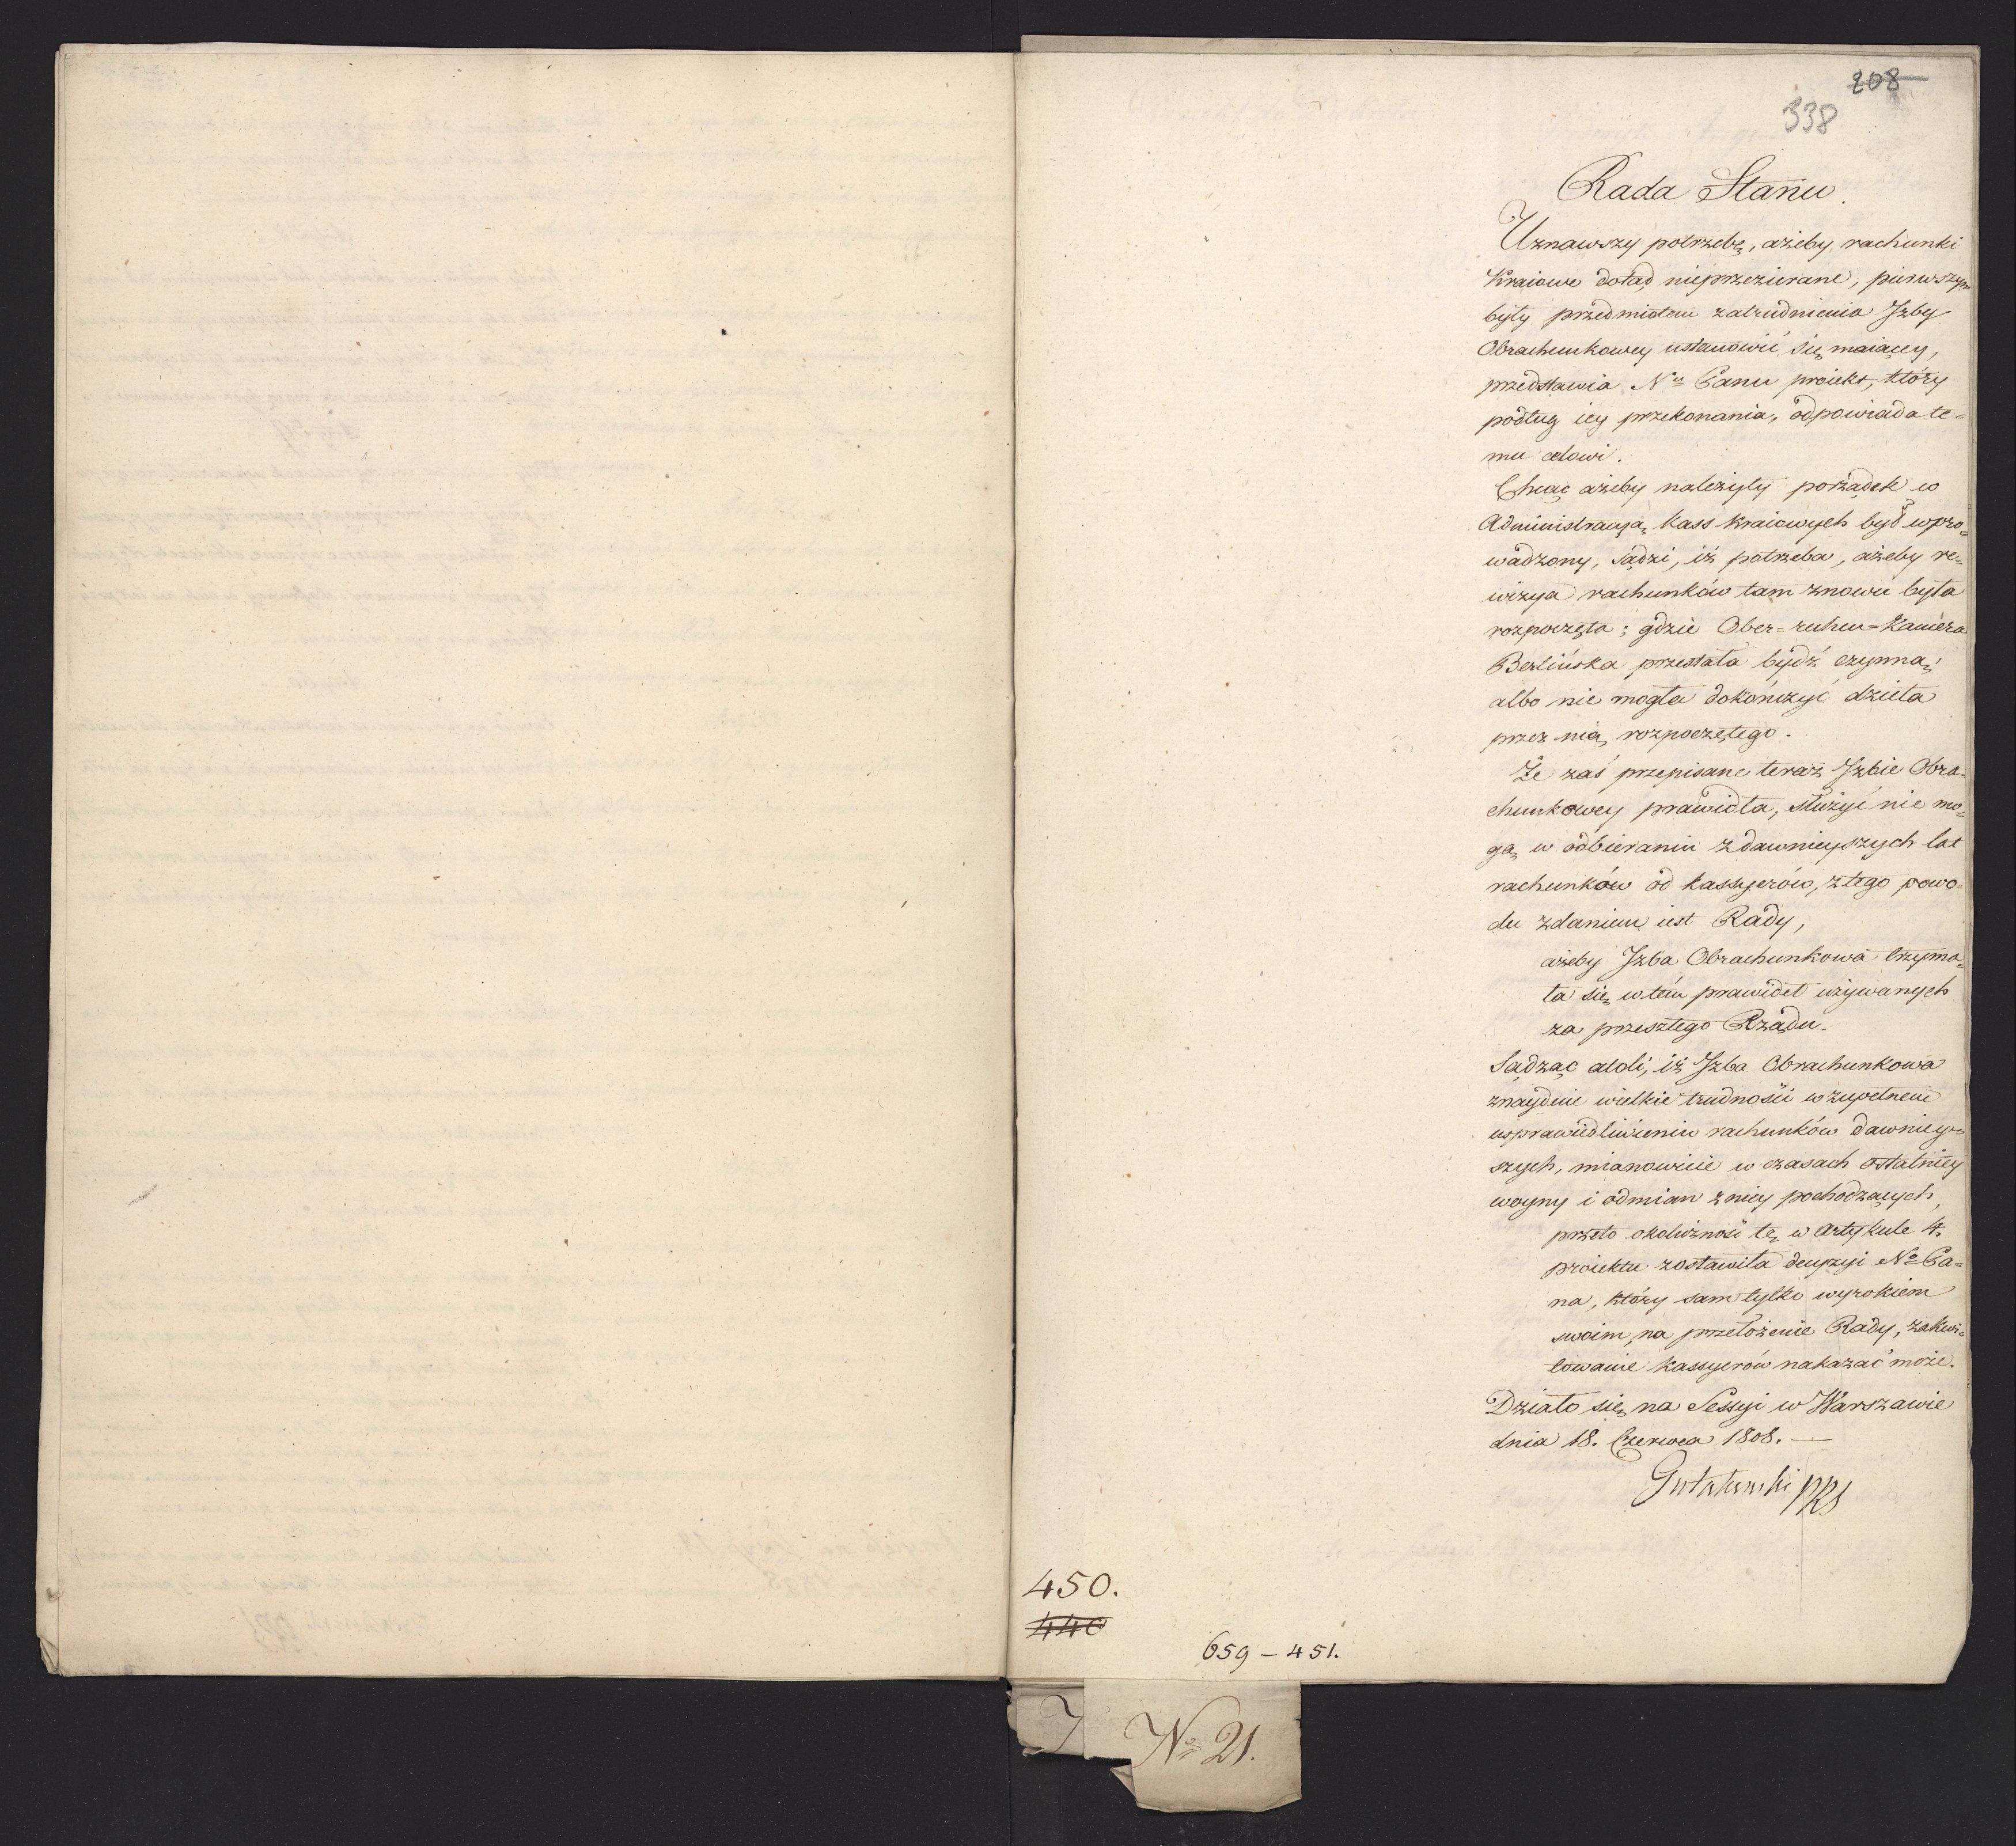 208
338
Rada Stanu.
Uznawszy potrzebę, ażeby rachunki
Kraiowe dotąd nieprzezierane, pierwszym
były przedmiotem zatrudnienia Jzby
Obrachunkowey ustanowić się maiącey,
przedstawia Nu Panu proiekt, który
podług iey przekonania, odpowiada te=
mu celowi.
Chcąc ażeby należyty porządek w
Administracyą kass kraiowych był wpro=
wadzony, sądzi, iż potrzeba, ażeby re=
wizya rachunków tam znowu była
rozpoczęta; gdzie Ober=rechen=Kamera
Berlińska przestała bydź czynną;
albo nie mogła dokończyć dzieła
przez nią rozpoczętego.
Że zaś przepisane teraz Jzbie Obra=
chunkowey prawidła, służyć nie mo=
gą w odbieraniu z dawnieyszych lat
rachunków od kassyerów, z tego powo=
du zdaniem iest Rady,
ażeby Jzba Obrachunkowa trzyma=
ła się w tem prawideł używanych
za przeszłego Rządu.
Sądząc atoli, iż Jzba Obrachunkowa
znaydzie wielkie trudności w zupełnem
usprawiedliwieniu rachunków dawniey=
szych, mianowicie w czasach ostatniey
woyny i odmian z niey pochodzących,
przeto okoliczność tę w Artykule 4.
proiektu zostawiła decyzyi No Pa=
na, który sam tylko wyrokiem
swoim, na przełożenie Rady, zakwi=
towanie kassyerów nakazać może.
Działo się na Sessyi w Warszawie
dnia 18. Czerwca 1808. —
Gutakowski PRS
450.
440
659 – 451.
No 21.